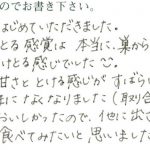 のでお書き下さい。
はじめていただきました。
とる感覚は本当に、巣から
ける感じでした
甘さととける感じがすばらし
まによくなりました(取り合
おいしかったので、他に出さ
食べてみたいと思いました